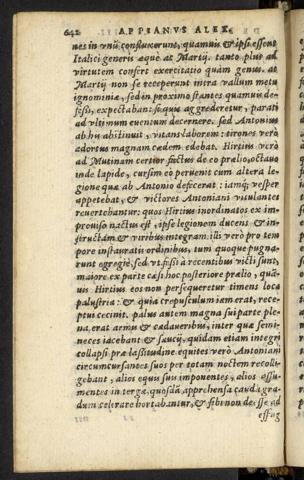 642 APPIANVS ALEX.
nes in vnũ conflixerunt, quamuis & ipsi essent
Italici generis æque at Martij. tanto plus ad
virtutem confert exercitatio quàm genus. at
Martij non se receperunt intra vallum metu
ignominiæ, sed in proximo stantes quamuis de-
fessi, expectabant, siquis aggrederetur, parati
ad vltimum euentum decernere. sed Antonius
ab hij abstinuit, vitans laborem: tirones verò
adortus magnam cædem edebat. Hirtius verò
ad Mutinam certior factus de eo prælio, octauo
inde lapide, cursim eò peruenit cum altera le-
gione quæ ab Antonio defecerat: iamq; vesper
appetebat, & victores Antoniani vitulantes
reuertebantur: quos Hirtius inordinatos ex im-
prouiso nactus est, ipse legionem ducens & in-
structam & viribus integram. illi verò pro tem
pore instauratis ordinibus, tum quoque pugna-
runt egregiè, sed vt fissi à recentibus victi sunt,
maiore ex parte cæsi hoc posteriore prælio, quã-
uis Hirtius eos non persequeretur timens loca
palustria: & quia crepusculum iam erat, rece-
ptus cecinit. palus autem magna sui parte ple-
na erat armis & cadaueribus, inter quæ semi-
neces iacebant & saucij, quidam etiam integri
collapsi præ lassitudine. equites verò Antoniani
circumcursantes suos per totam noctem recolli-
gebant, alios equis suis imponentes, alios assu-
mentes in terga, quosdã apprehensa cauda gra-
dum celerare hortabantur, & sibi non deesse ad
effug